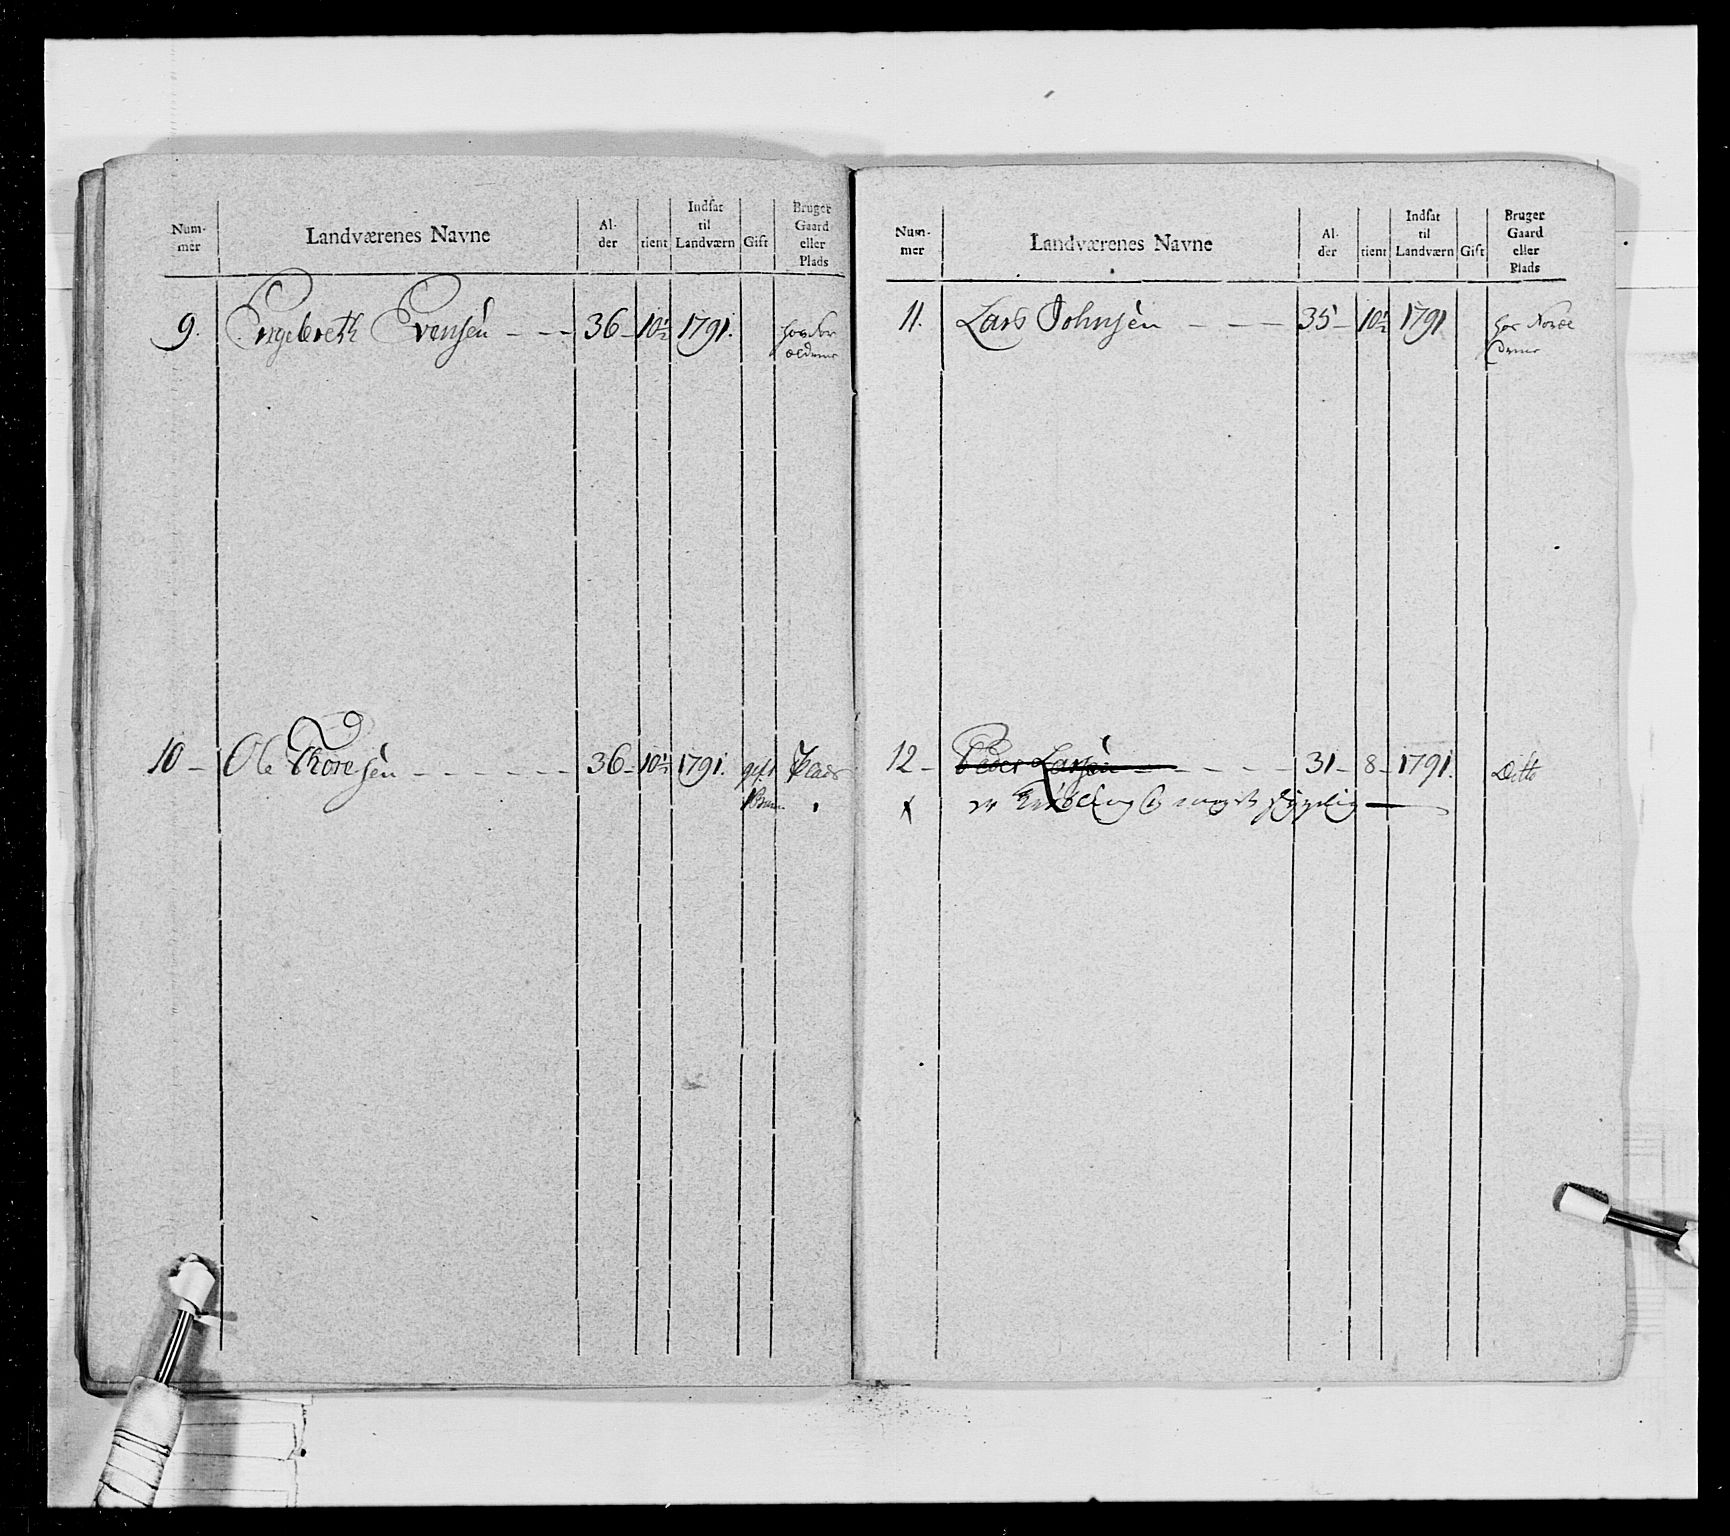 Num-
mer
Landværenes Navne
Al-
der
tient
Indsat
til
Landværn
Gift
Bruger
Gaard
eller
Plads
9. Engebreth Evensen - - - 36 - 10½ 1791. hos for
ældrene
10 - Ole Thoresen - - - - - - 36 - 10½ 1791. gift Plads
1 Barn
Num-
mer
Landværenes Navne
Al-
der
tient
Indsat
til
Landværn
Gift
Bruger
Gaard
eller
Plads
11. Lars Johnsen - - - 35 - 10½ 1791 hos Foræl
drene
12 - Peder Larsen - - - - - 31 - 8 - 1791. Ditto
er Krøbling og meget